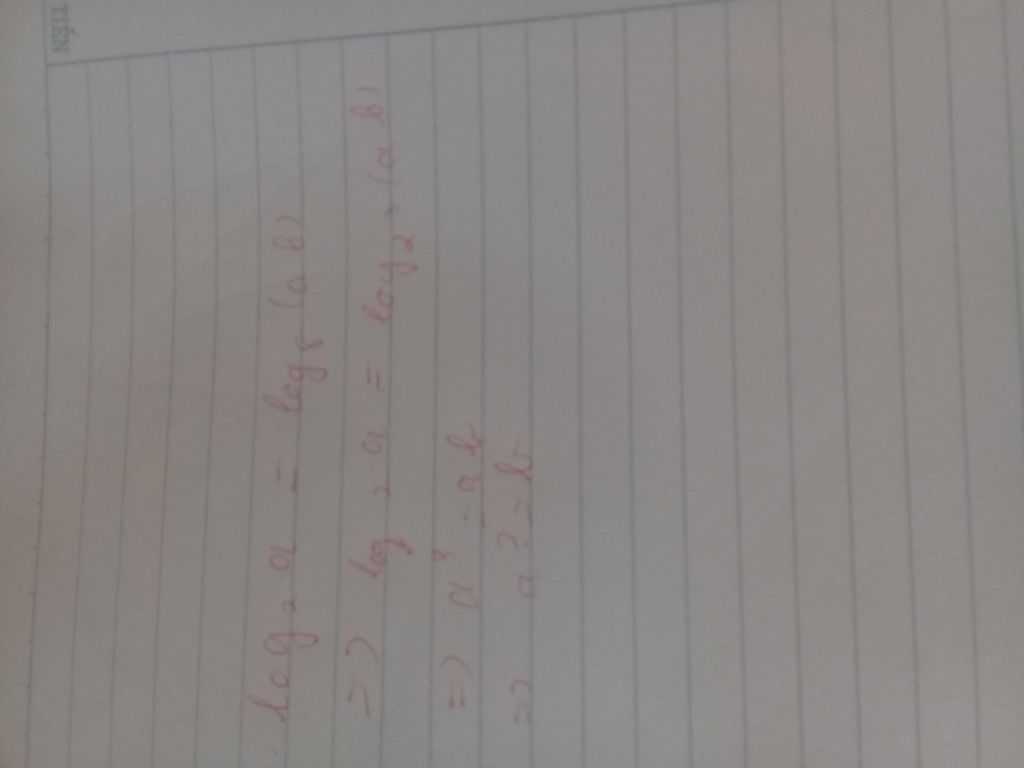 TIẾN
log₂ a = log₈ (a b)
=> log₂ a = log₂³ (a b)
=> a³ = ab
=> a² = b